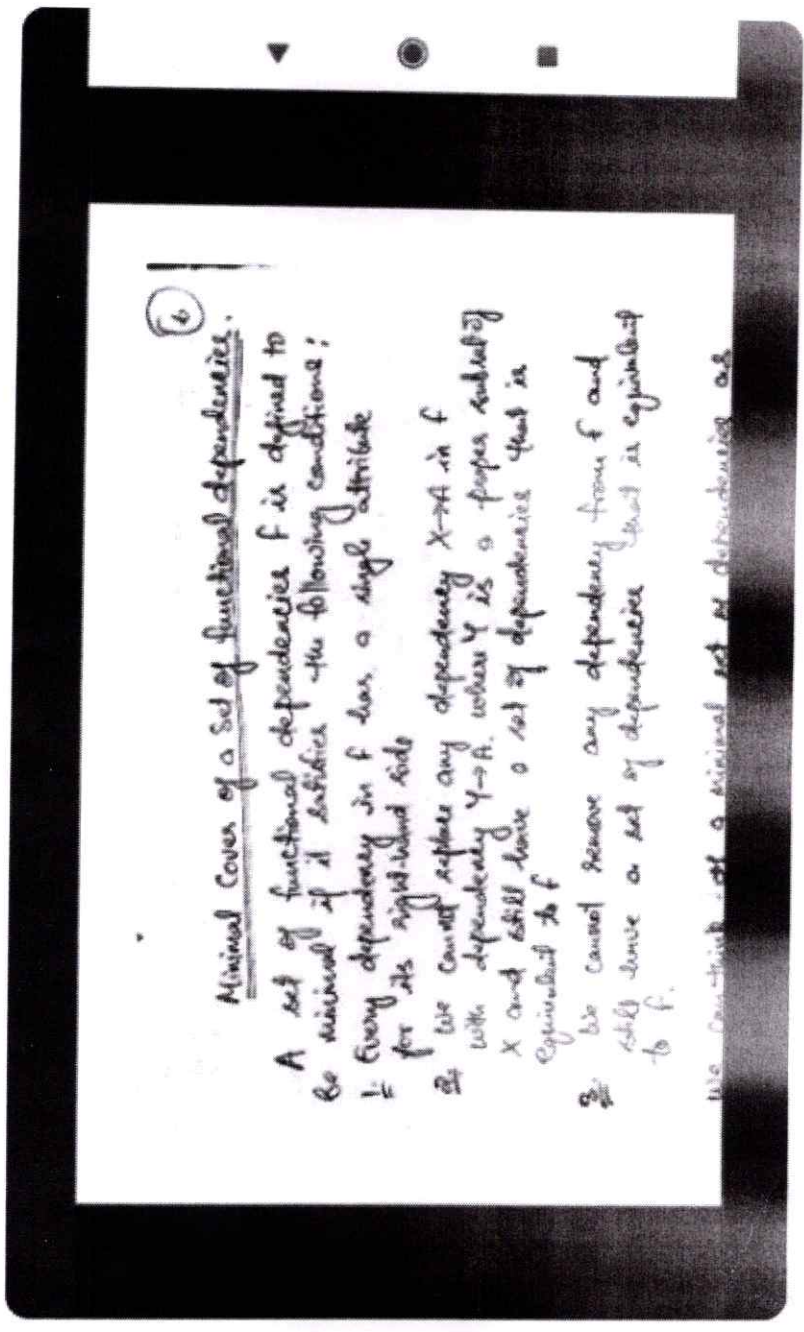 6
Minimal Cover of a Set of functional dependencies.
A set of functional dependencies F is defined to
be minimal if it satisfies the following conditions;
1. Every dependency in F has a single attribute
for its right-hand side
2. We cannot replace any dependency X→A in F
with dependency Y→A. where Y is a proper subset of
X and still have a set of dependencies that is
equivalent to F
3. We cannot remove any dependency from F and
still have a set of dependencies that is equivalent
to F.
We can think of a minimal set of dependencies as